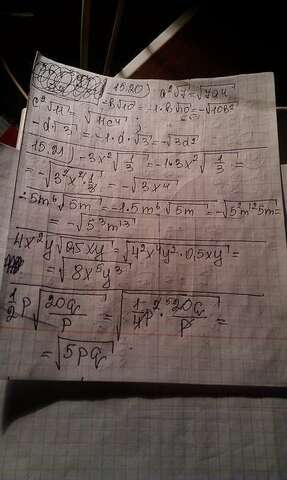 15.20) a²√7 = √7a⁴
c²√11 = √11c⁴
-b√10 = -1·b√10 = -√10b²
-d√3 = -1·d·√3 = -√3d²
15.21) -3x²√(1/3) = -1·3x²√(1/3) =
= -√(3²x²·1/3) = -√3x⁴
-5m⁶√5m = -1·5m⁶√5m = -√(5²m¹²5m) =
= -√(5³m¹³)
4x²y√(0,5xy) = √(4²x⁴y²·0,5xy) =
= √(8x⁵y³)
1/2 p√(20q/p) = √(1/4 p²·20q/p) =
= √(5pq)